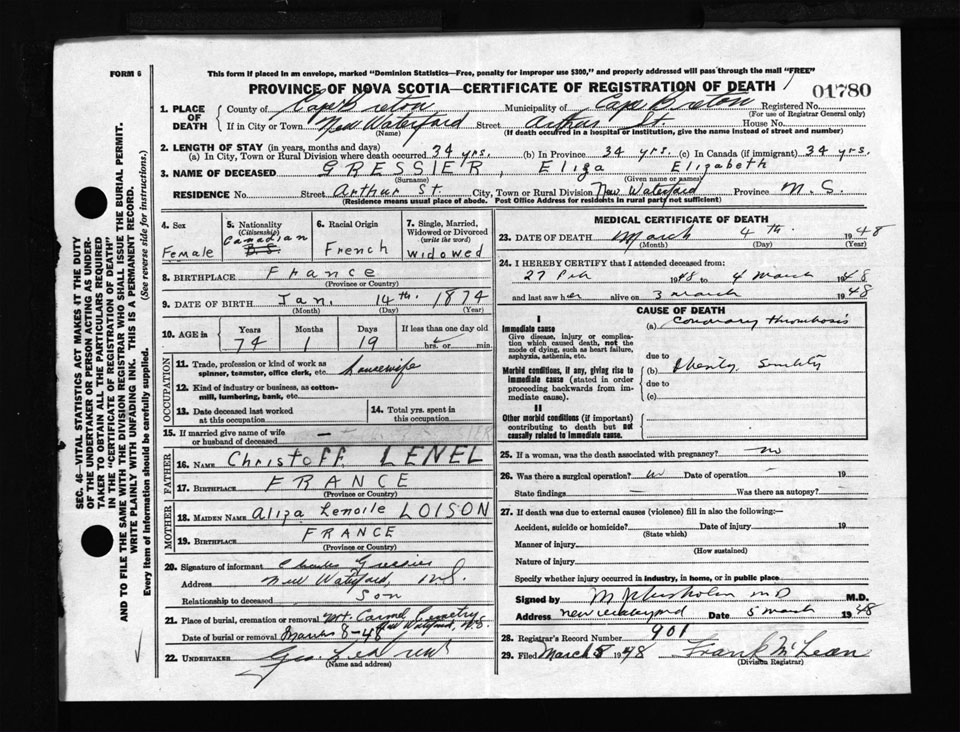 FORM 6
This form if placed in an envelope, marked "Dominion Statistics—Free, penalty for improper use $300," and properly addressed will pass through the mail "FREE"
PROVINCE OF NOVA SCOTIA—CERTIFICATE OF REGISTRATION OF DEATH
01780
1. PLACE OF DEATH
County of Cape Breton Municipality of Cape Breton Registered No.
(For use of Registrar General only)
If in City or Town New Waterford Street Arthur St. House No.
(Name) (If death occurred in a hospital or institution, give the name instead of street and number)
2. LENGTH OF STAY (in years, months and days)
(a) In City, Town or Rural Division where death occurred 34 yrs. (b) In Province 34 yrs. (c) In Canada (if immigrant) 34 yrs.
3. NAME OF DECEASED GRESSIER, Eliza Elizabeth
(Surname) (Given name or names)
RESIDENCE No. Street Arthur St. City, Town or Rural Division New Waterford Province N.S.
(Residence means usual place of abode. Post Office Address for residents in rural parts not sufficient)
4. Sex
Female
5. Nationality
(Citizenship)
Canadian
6. Racial Origin
French
7. Single, Married, Widowed or Divorced
(write the word)
Widowed
8. BIRTHPLACE France
(Province or Country)
9. DATE OF BIRTH Jan. 14th. 1874
(Month) (Day) (Year)
10. AGE in
Years Months Days If less than one day old
74 1 19 hrs. or min.
OCCUPATION
11. Trade, profession or kind of work as spinner, teamster, office clerk, etc. housewife
12. Kind of industry or business, as cotton-mill, lumbering, bank, etc.
13. Date deceased last worked at this occupation
14. Total yrs. spent in this occupation
15. If married give name of wife or husband of deceased
FATHER
16. NAME Christoff LENEL
17. BIRTHPLACE FRANCE
(Province or Country)
MOTHER
18. MAIDEN NAME Aliza Lenoile LOISON
19. BIRTHPLACE FRANCE
(Province or Country)
20. Signature of informant Charles Gressier
Address New Waterford, N.S.
Relationship to deceased Son
21. Place of burial, cremation or removal Mt. Carmel Cemetery
New Waterford, N.S.
Date of burial or removal March 8-48
22. UNDERTAKER Geo.
(Name and address)
MEDICAL CERTIFICATE OF DEATH
23. DATE OF DEATH March 4th. 1948
(Month) (Day) (Year)
24. I HEREBY CERTIFY that I attended deceased from:
27 Feb 1948 to 4 March 1948
and last saw her alive on 3 march 1948
CAUSE OF DEATH
I
Immediate cause
Give disease, injury or complication which caused death, not the mode of dying, such as heart failure, asphyxia, asthenia, etc.
(a) Coronary thrombosis
due to
Morbid conditions, if any, giving rise to immediate cause (stated in order proceeding backwards from immediate cause).
(b) Obesity, Senility
due to
(c)
II
Other morbid conditions (if important) contributing to death but not causally related to immediate cause.
25. If a woman, was the death associated with pregnancy? no
26. Was there a surgical operation? Date of operation - 19
State findings - Was there an autopsy? -
27. If death was due to external causes (violence) fill in also the following:—
Accident, suicide or homicide? Date of injury 19
(State which)
Manner of injury
(How sustained)
Nature of injury
Specify whether injury occurred in industry, in home, or in public place
Signed by M.D.
Address New Waterford Date 5 march 1948
28. Registrar's Record Number 901
29. Filed March 8 1948 Frank McLean
(Division Registrar)
SEC. 46—VITAL STATISTICS ACT MAKES IT THE DUTY
OF THE UNDERTAKER OR PERSON ACTING AS UNDERTAKER TO OBTAIN ALL THE PARTICULARS REQUIRED
IN THE "CERTIFICATE OF REGISTRATION OF DEATH"
AND TO FILE THE SAME WITH THE DIVISION REGISTRAR WHO SHALL ISSUE THE BURIAL PERMIT.
WRITE PLAINLY WITH UNFADING INK. THIS IS A PERMANENT RECORD.
Every item of information should be carefully supplied. (See reverse side for instructions.)